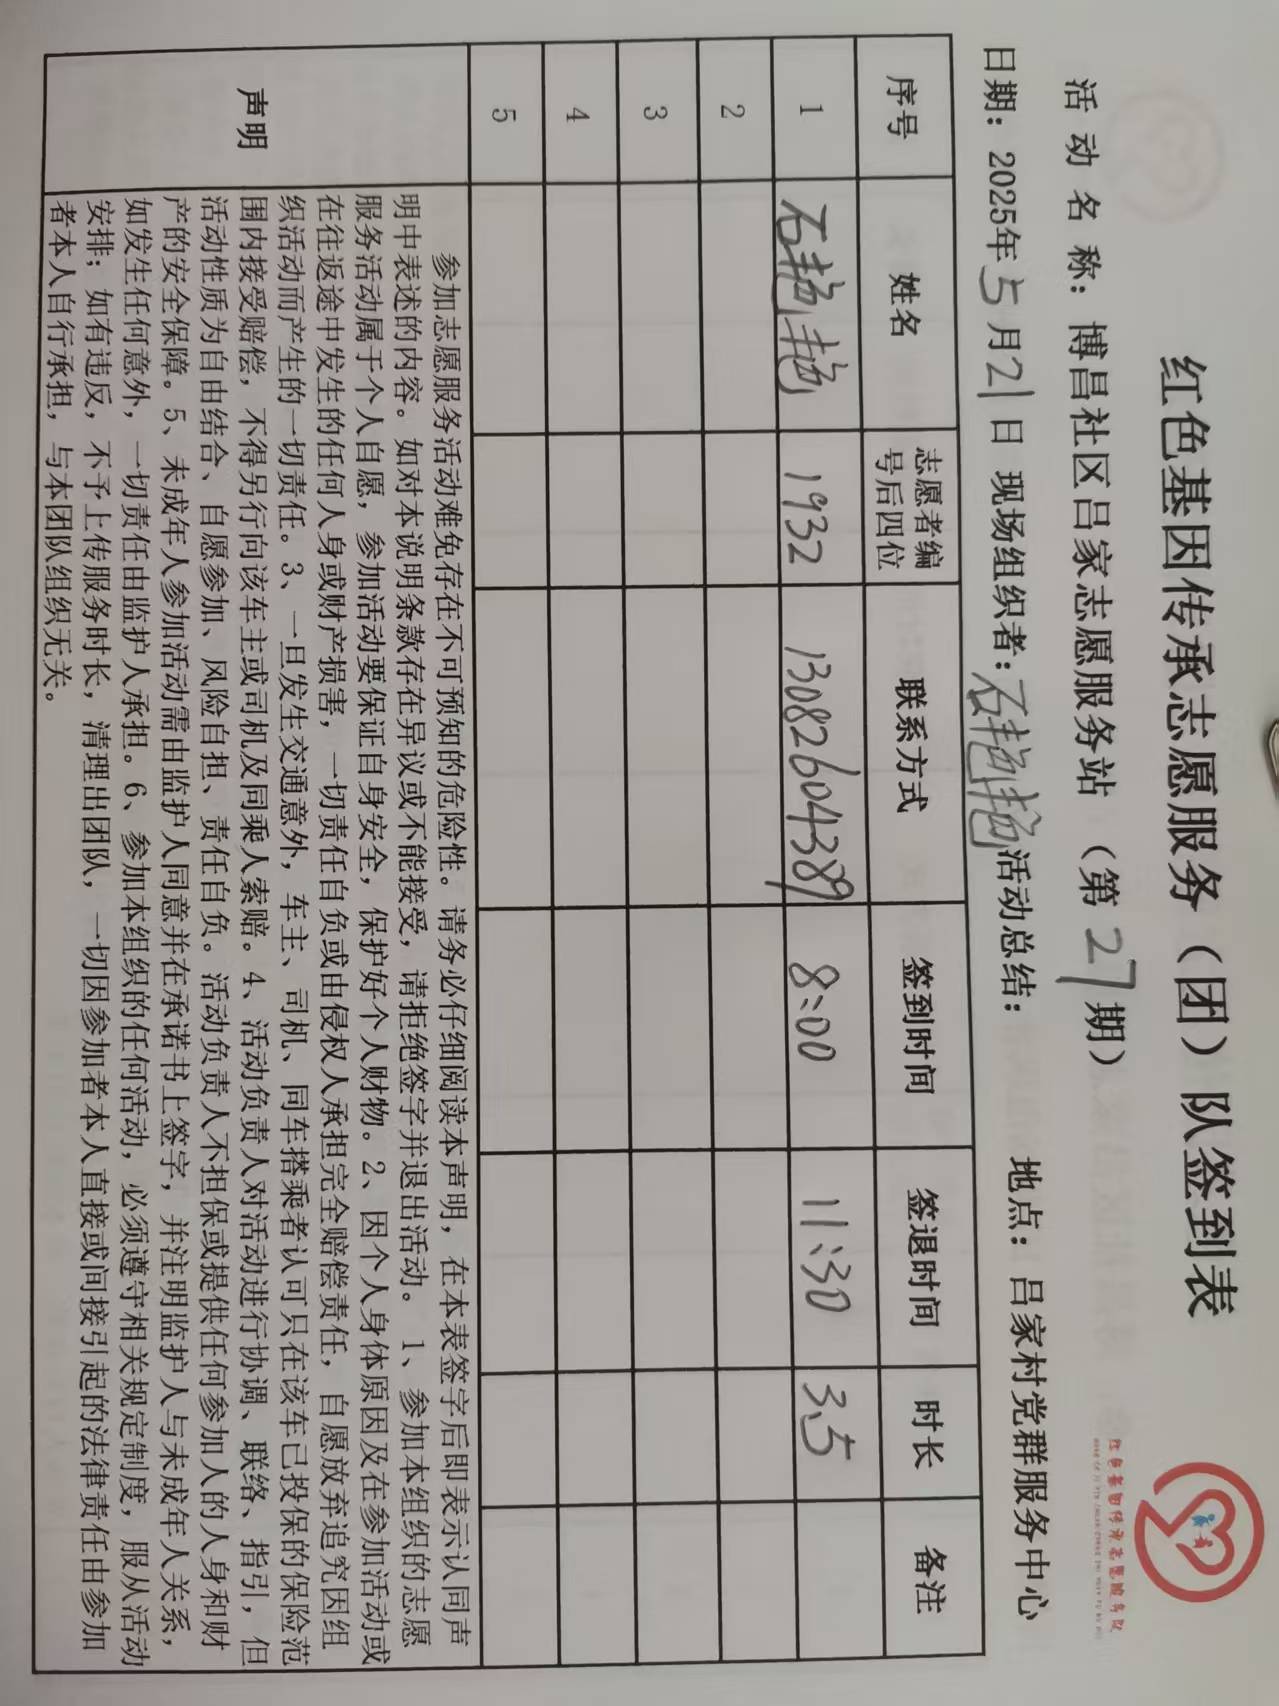 红色基因传承志愿服务（团）队签到表
红色基因传承志愿服务队
活动名称：博昌社区吕家志愿服务站（第27期）
日期：2025年5月21日 现场组织者：石艳艳 活动总结： 地点：吕家村党群服务中心
序号 姓名 志愿者编号后四位 联系方式 签到时间 签退时间 时长 备注
1 石艳艳 1932 13082604389 8:00 11:30 3.5
2
3
4
5
声明
参加志愿服务活动难免存在不可预知的危险性。请务必仔细阅读本声明，在本表签字后即表示认同声
明中表述的内容。如对本说明条款存在异议或不能接受，请拒绝签字并退出活动。1、参加本组织的志愿
服务活动属于个人自愿，参加活动要保证自身安全，保护好个人财物。2、因个人身体原因及在参加活动或
在往返途中发生的任何人身或财产损害，一切责任自负或由侵权人承担完全赔偿责任，自愿放弃追究因组
织活动而产生的一切责任。3、一旦发生交通意外，车主、司机、同车搭乘者认可只在该车已投保的保险范
围内接受赔偿，不得另行向该车主或司机及同乘人索赔。4、活动负责人对活动进行协调、联络、指引，但
活动性质为自由结合、自愿参加、风险自担、责任自负。活动负责人不担保或提供任何参加人的人身和财
产的安全保障。5、未成年人参加活动需由监护人同意并在承诺书上签字，并注明监护人与未成年人关系，
如发生任何意外，一切责任由监护人承担。6、参加本组织的任何活动，必须遵守相关规定制度，服从活动
安排；如有违反，不予上传服务时长，清理出团队，一切因参加者本人直接或间接引起的法律责任由参加
者本人自行承担，与本团队组织无关。